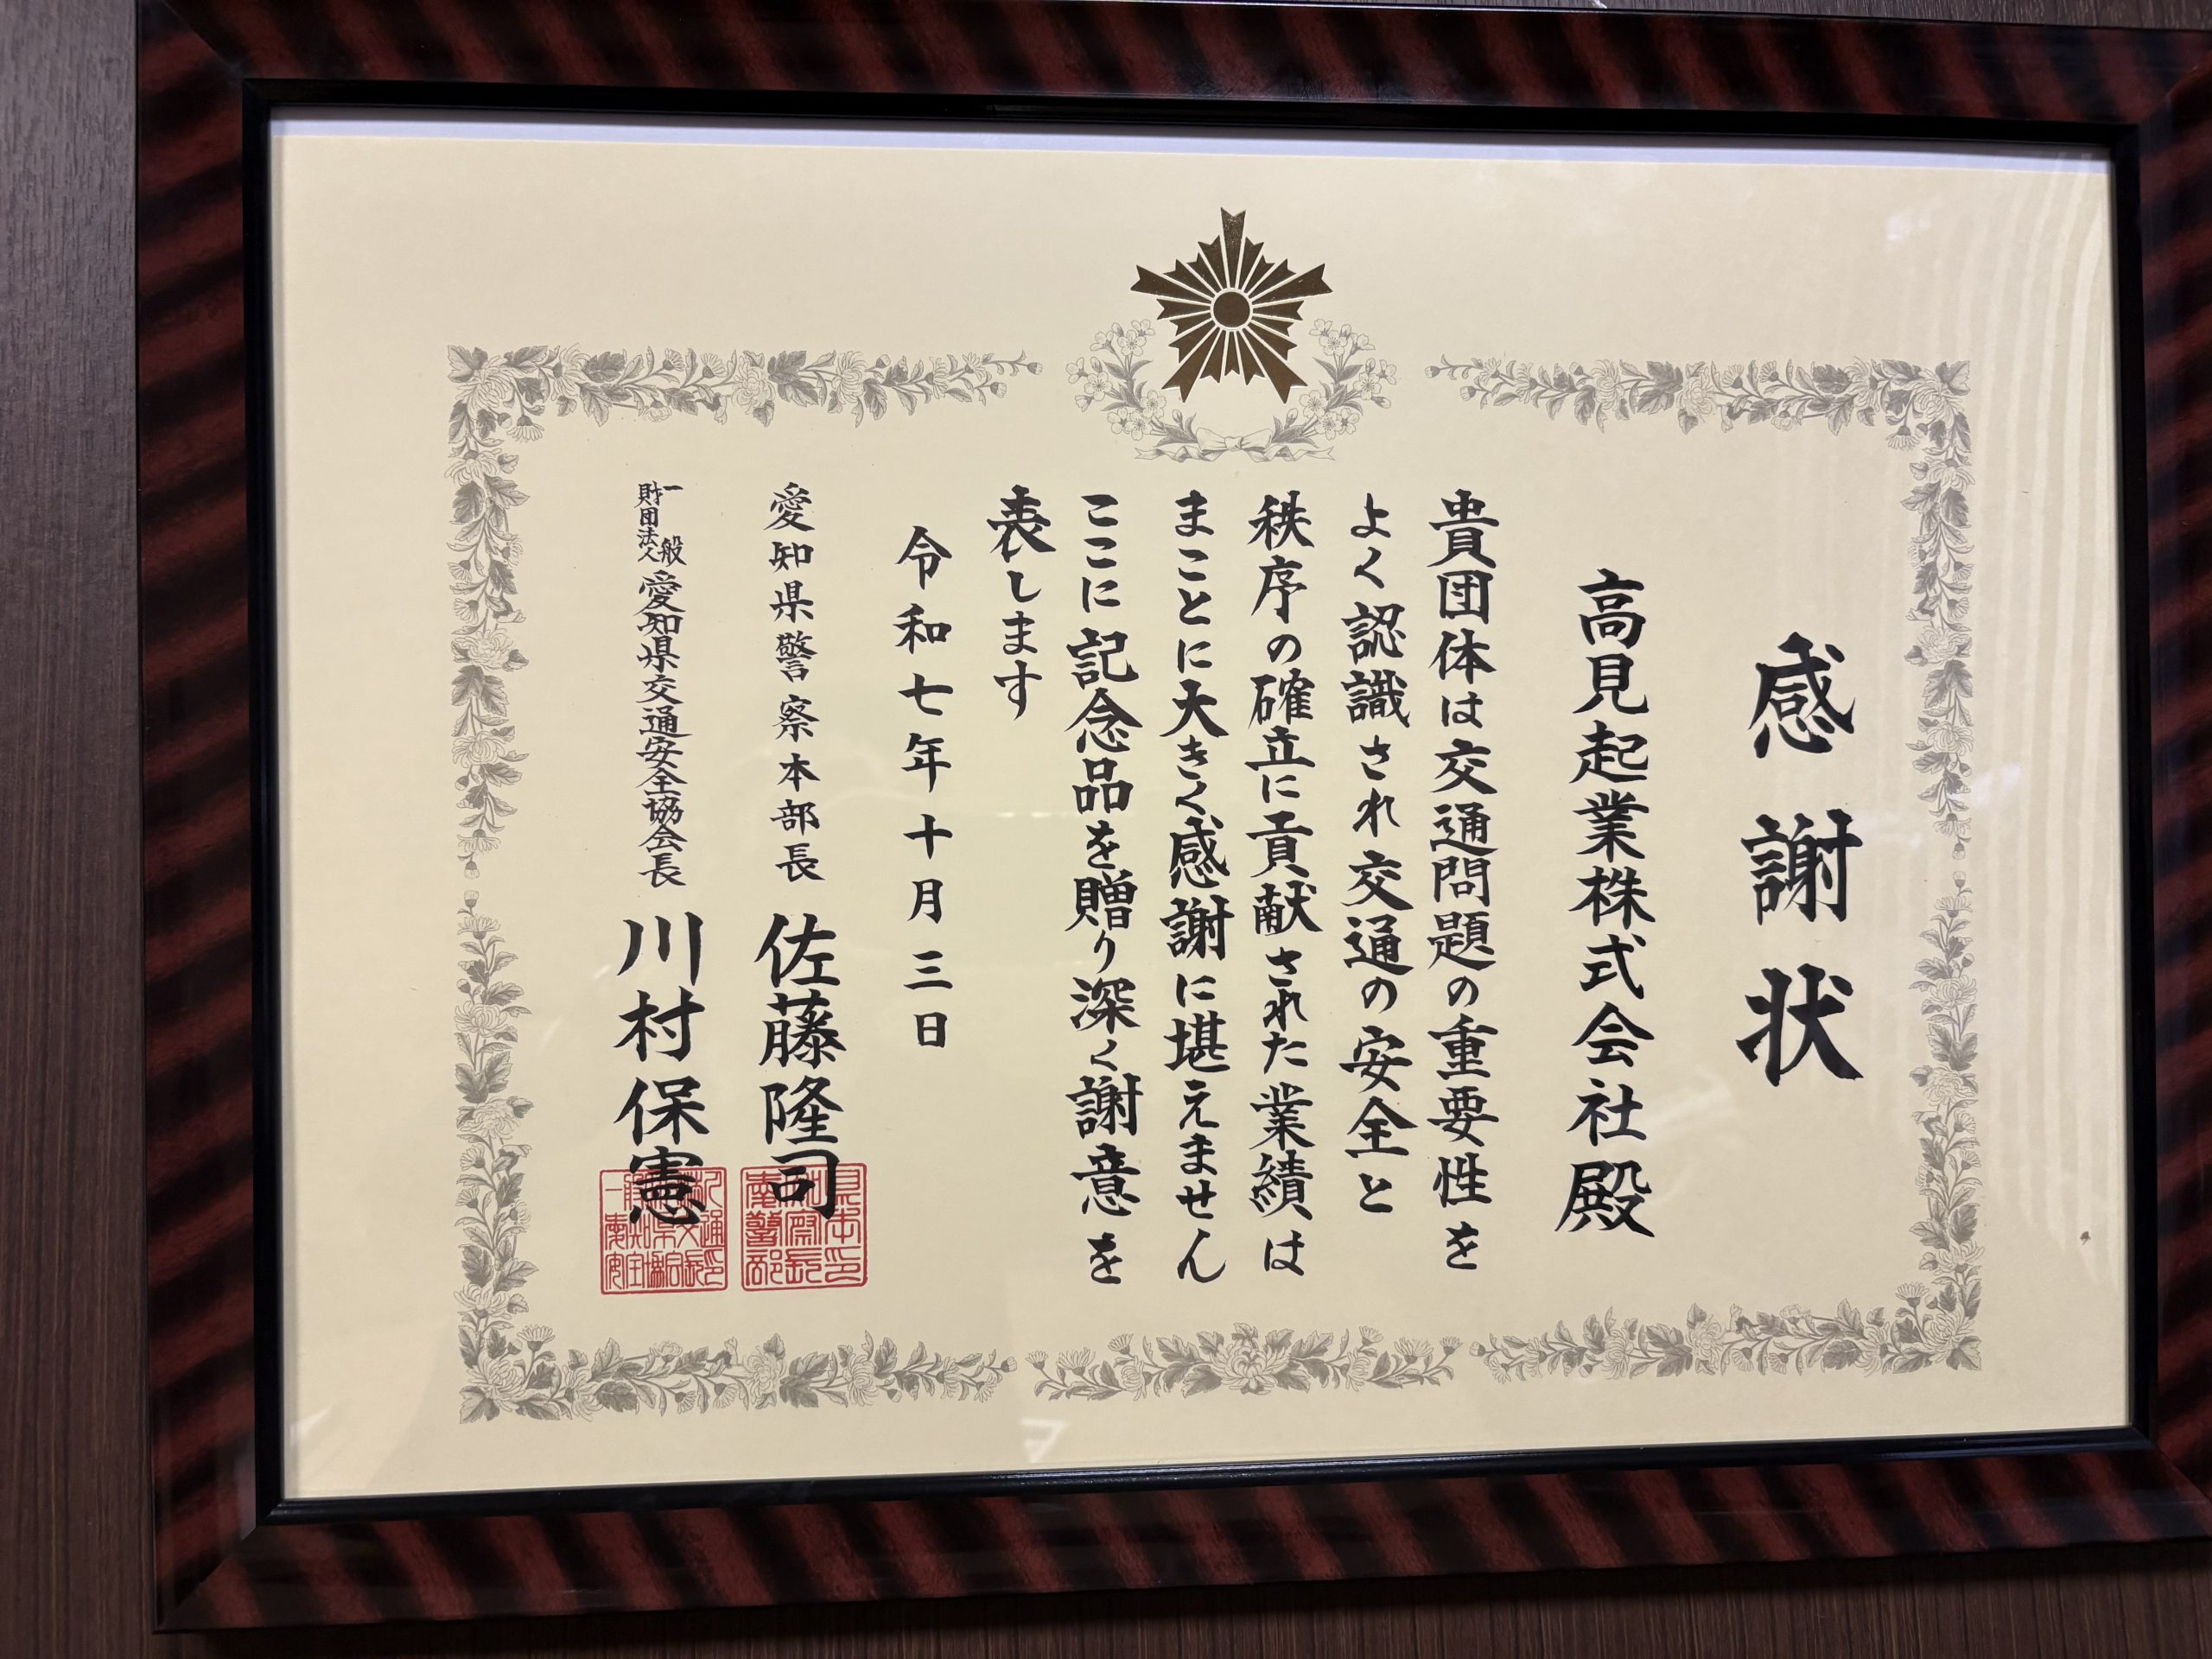 感謝状
高見起業株式会社殿
貴団体は交通問題の重要性を
よく認識され交通の安全と
秩序の確立に貢献された業績は
まことに大きく感謝に堪えません
ここに記念品を贈り深く謝意を
表します
令和七年十月三日
愛知県警察本部長 佐藤隆司
一般財団法人愛知県交通安全協会長 川村保憲